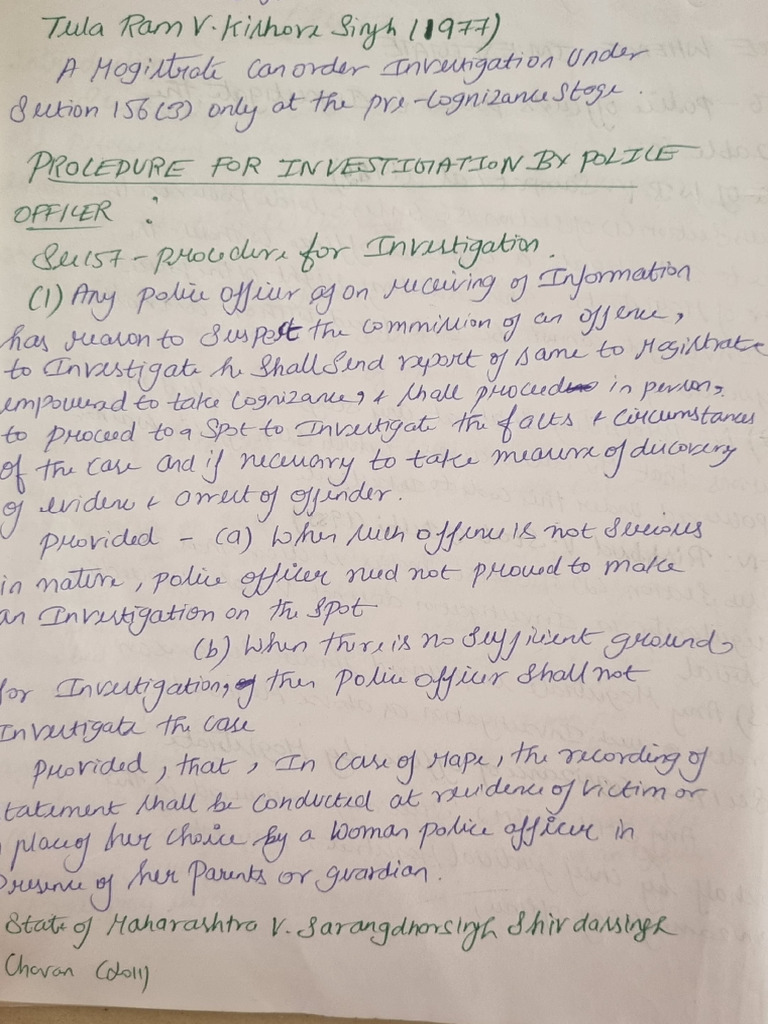 Tula Ram V. Kishore Singh (1977)
A Magistrate can order Investigation Under
Section 156(3) only at the pre-Cognizance Stage.
PROCEDURE FOR INVESTIGATION BY POLICE
OFFICER :
Sec 157 - procedure for Investigation.
(1) Any police officer on receiving of Information
has reason to Suspect the commission of an offence,
to Investigate he Shall Send report of same to Magistrate
empowered to take Cognizance, & shall proceed in person,
to proceed to a Spot to Investigate the facts & circumstances
of the case and if necessary to take measure of discovery
of evidence & arrest of offender.
Provided - (a) When such offence is not Serious
in nature, police officer need not proceed to make
an Investigation on the Spot
(b) When there is no sufficient ground
for Investigation, then Police officer Shall not
Investigate the case
Provided, that, In case of rape, the recording of
tatement shall be conducted at residence of victim or
place of her choice by a woman police officer in
Presence of her Parents or guardian.
State of Maharashtra V. Sarangdharsingh Shivdassingh
Chavan (2011)